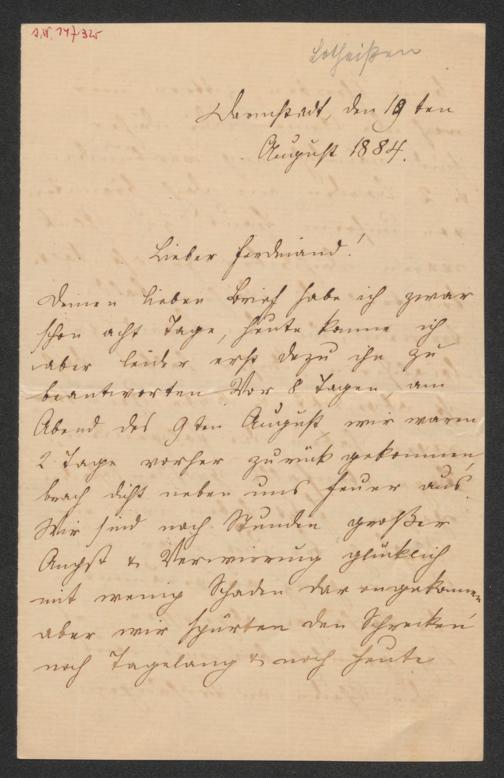 Lotheißen
Darmstadt, den 19ten
August 1884.
Lieber Ferdinand!
Deinen lieben Brief habe ich zwar
schon acht Tage, heute komme ich
aber leider erst dazu ihn zu
beantworten. Vor 8 Tagen, am
Abend des 9ten August, wir waren
2 Tage vorher zurück gekommen,
brach dicht neben uns Feuer aus.
Wir sind nach Stunden großer
Angst & Verwirrung glücklich
mit wenig Schaden davongekommen
aber wir spürten den Schrecken
noch Tagelang & noch heute